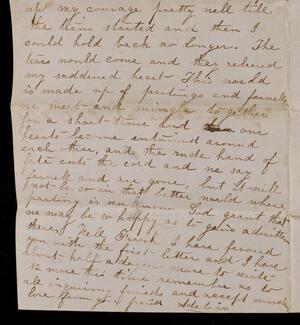 up my courage pretty well till
the train started and then I
could hold back no longer. The
tears would come and they relieved
my saddened heart - This world
is made up of partings and farewells
we meet and mingle together
for a short time and our
hearts become entwined around
each other, and the rude hand of
fate cuts the cord and we say
farewell and are gone, but it will
not be so in that better world where
parting is unknown. God grant that
we may be so happy as to gain admittance
there. Well Frank I have favored
you with the first letter and I have
but half a day - more to write
no more this time remember us to
all enquiring friends and accept much
love from your friend Adelia